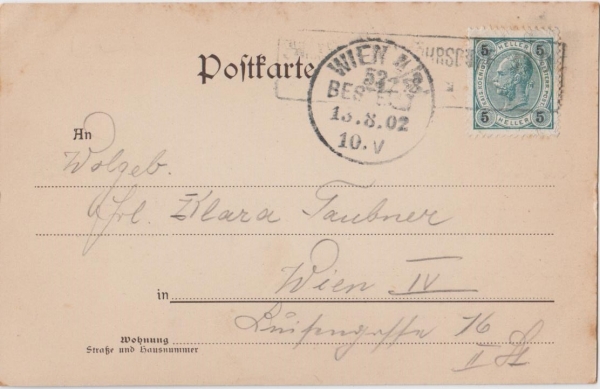 Postkarte
WIEN 4/3
52
BES
13.8.02
10.V
5 HELLER 5
5 HELLER 5
An
Wolgeb.
Frl. Klara Taubner
in Wien IV
Luisengasse 16
II St
Wohnung
Straße und Hausnummer